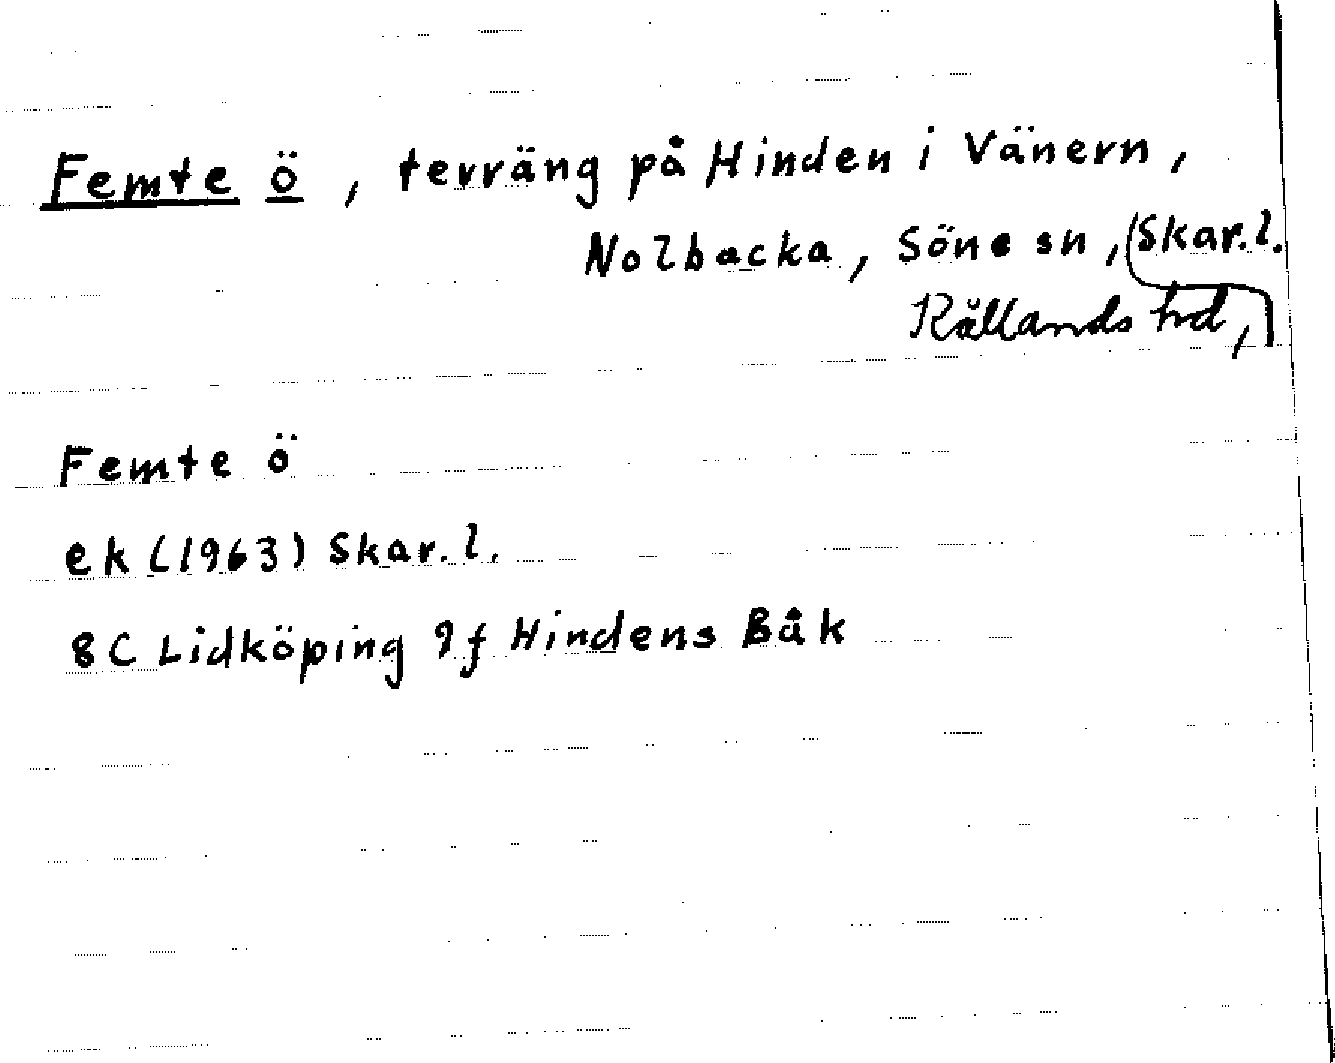 Femte ö, terräng på Hinden i Vänern,
Nolbacka, Söne sn, Skar.l.
Kållands hd,
Femte ö
ek (1963) Skar.l.
8C Lidköping 9f Hindens Båk